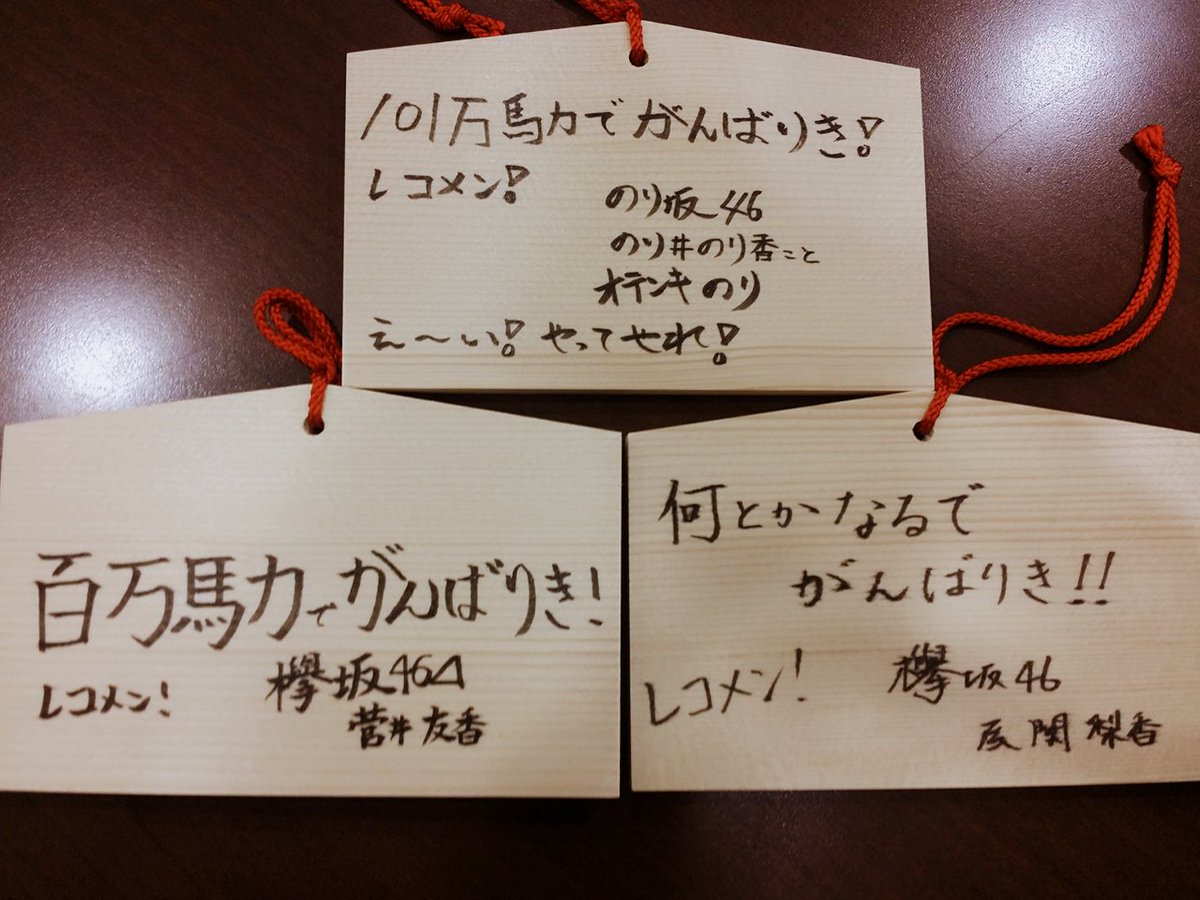 101万馬力でがんばりき!
レコメン!
のり坂46
のり井のり香こと
オテンキのり
え〜い!やってやれ!
百万馬力でがんばりき!
レコメン!
欅坂46⊿
菅井友香
何とかなるで
がんばりき!!
レコメン!
欅坂46
尾関梨香